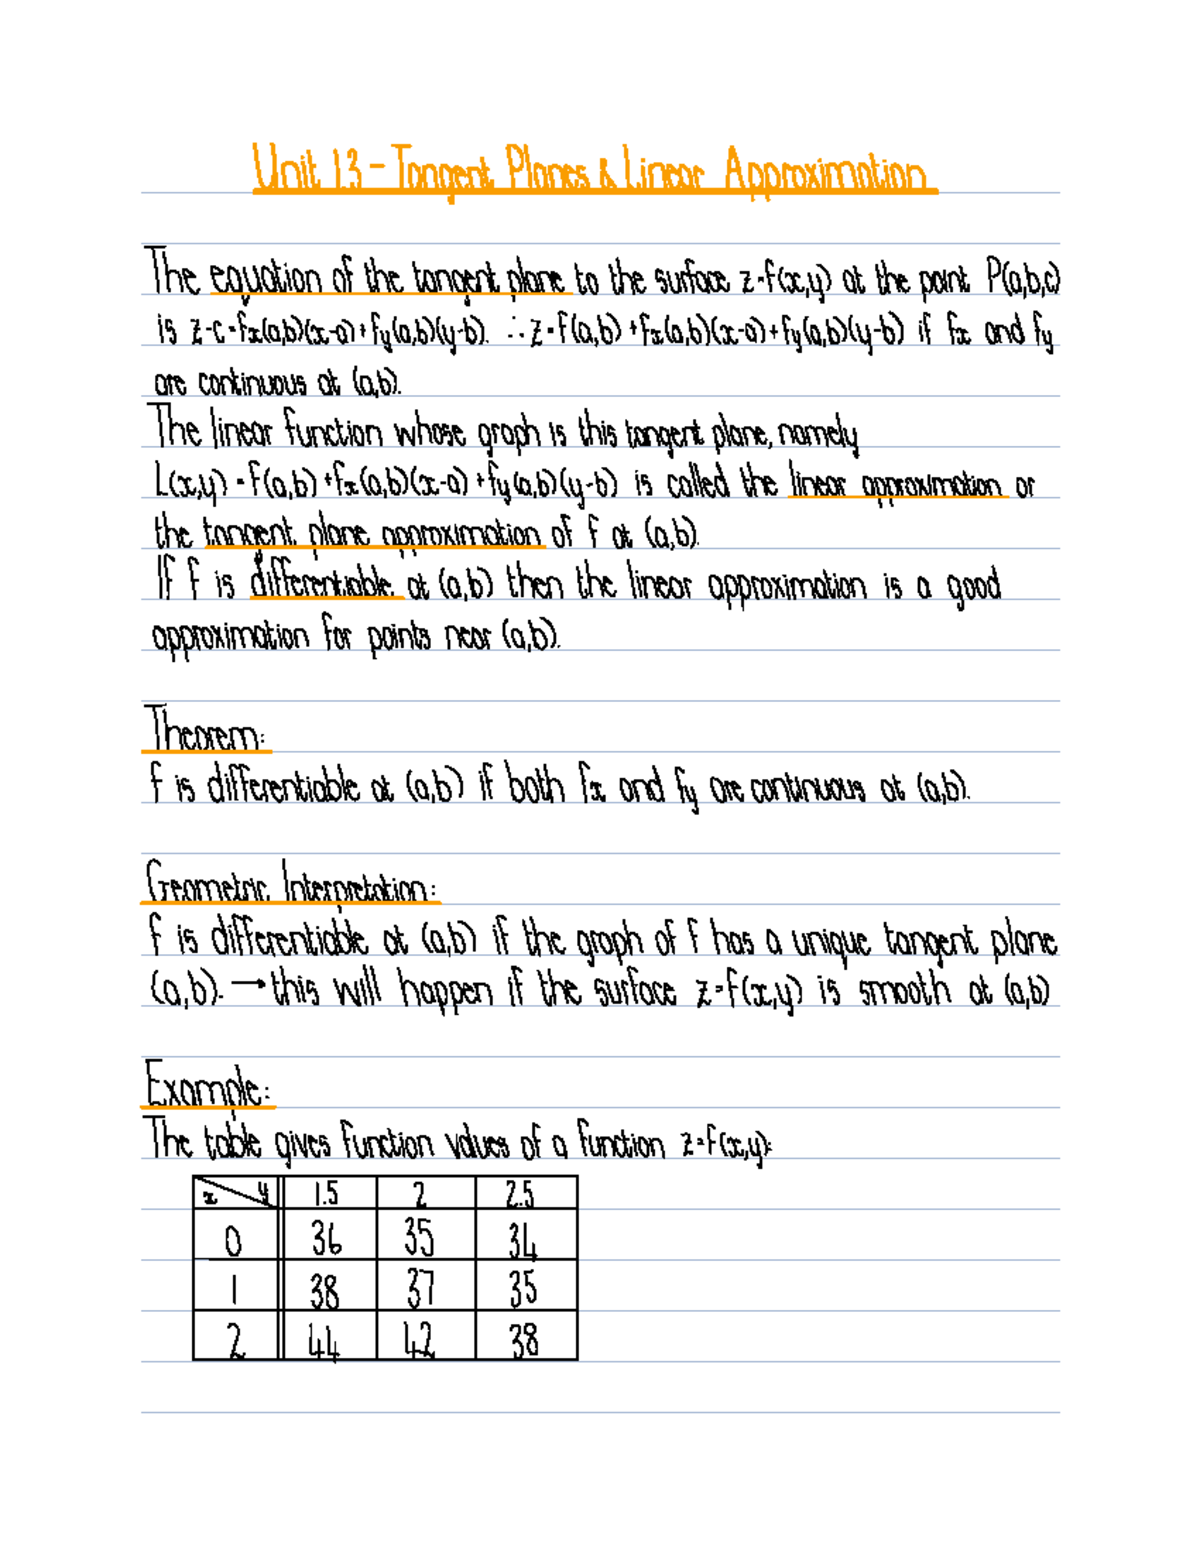 Unit 1.3 - Tangent Planes & Linear Approximation
The equation of the tangent plane to the surface z=f(x,y) at the point P(a,b,c)
is z-c=fx(a,b)(x-a)+fy(a,b)(y-b). ∴ z=f(a,b)+fx(a,b)(x-a)+fy(a,b)(y-b) if fx and fy
are continuous at (a,b).
The linear function whose graph is this tangent plane, namely
L(x,y)=f(a,b)+fx(a,b)(x-a)+fy(a,b)(y-b) is called the linear approximation or
the tangent plane approximation of f at (a,b).
If f is differentiable at (a,b) then the linear approximation is a good
approximation for points near (a,b).
Theorem:
f is differentiable at (a,b) if both fx and fy are continuous at (a,b).
Geometric Interpretation:
f is differentiable at (a,b) if the graph of f has a unique tangent plane
(a,b). → this will happen if the surface z=f(x,y) is smooth at (a,b)
Example:
The table gives function values of a function z=f(x,y):
x y 1.5 2 2.5
0 36 35 34
1 38 37 35
2 44 42 38